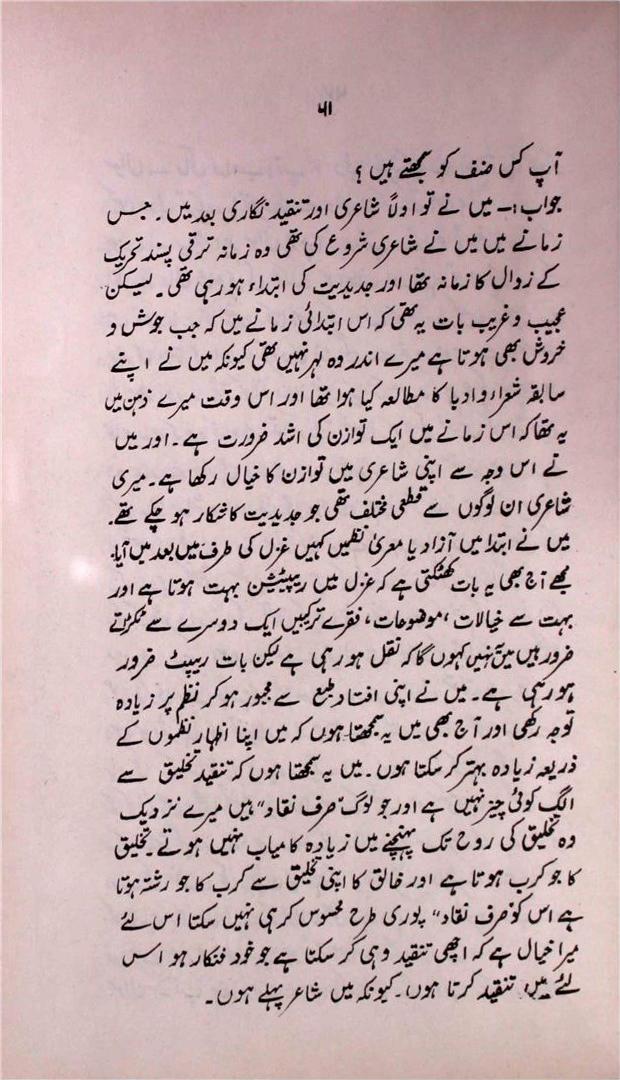 ۵۱
آپ کس صنف کو سمجھتے ہیں؟
جواب:۔ میں نے تو اولاً شاعری اور تنقید نگاری بعد میں۔ جس
زمانے میں میں نے شاعری شروع کی تھی وہ زمانہ ترقی پسند تحریک
کے زوال کا زمانہ تھا اور جدیدیت کی ابتداء ہو رہی تھی۔ لیکن
عجیب و غریب بات یہ تھی کہ اس ابتدائی زمانے میں کہ جب جوش و
خروش بھی ہوتا ہے میرے اندر وہ لہر نہیں تھی کیونکہ میں نے اپنے
سابقہ شعراء و ادبا کا مطالعہ کیا ہوا تھا اور اس وقت میرے ذہن میں
یہ تھا کہ اس زمانے میں ایک توازن کی اشد ضرورت ہے۔ اور میں
نے اس وجہ سے اپنی شاعری میں توازن کا خیال رکھا ہے۔ میری
شاعری ان لوگوں سے قطعی مختلف تھی جو جدیدیت کا شکار ہو چکے تھے۔
میں نے ابتدا میں آزاد یا معریٰ نظمیں کہیں غزل کی طرف میں بعد میں آیا۔
مجھے آج بھی یہ بات کھٹکتی ہے کہ غزل میں ریپیٹیشن بہت ہوتا ہے اور
بہت سے خیالات، موضوعات، فقرے ترکیبیں ایک دوسرے سے ٹکراتے
ضرور ہیں میں یہ نہیں کہوں گا کہ نقل ہو رہی ہے لیکن بات ریپیٹ ضرور
ہو رہی ہے۔ میں نے اپنی افتاد طبع سے مجبور ہو کر نظم پر زیادہ
توجہ رکھی اور آج بھی میں یہ سمجھتا ہوں کہ میں اپنا اظہار نظموں کے
ذریعہ زیادہ بہتر کر سکتا ہوں۔ میں یہ سمجھتا ہوں کہ تنقید تخلیق سے
الگ کوئی چیز نہیں ہے اور جو لوگ "صرف نقاد" ہیں میرے نزدیک
وہ تخلیق کی روح تک پہنچنے میں زیادہ کامیاب نہیں ہوتے۔ تخلیق
کا جو کرب ہوتا ہے اور خالق کا اپنی تخلیق سے کرب کا جو رشتہ ہوتا
ہے اس کو صرف نقاد" پوری طرح محسوس کر ہی نہیں سکتا اس لئے
میرا خیال ہے کہ اچھی تنقید وہی کر سکتا ہے جو خود فنکار ہو اس
لئے میں تنقید کرتا ہوں۔ کیونکہ میں شاعر پہلے ہوں۔